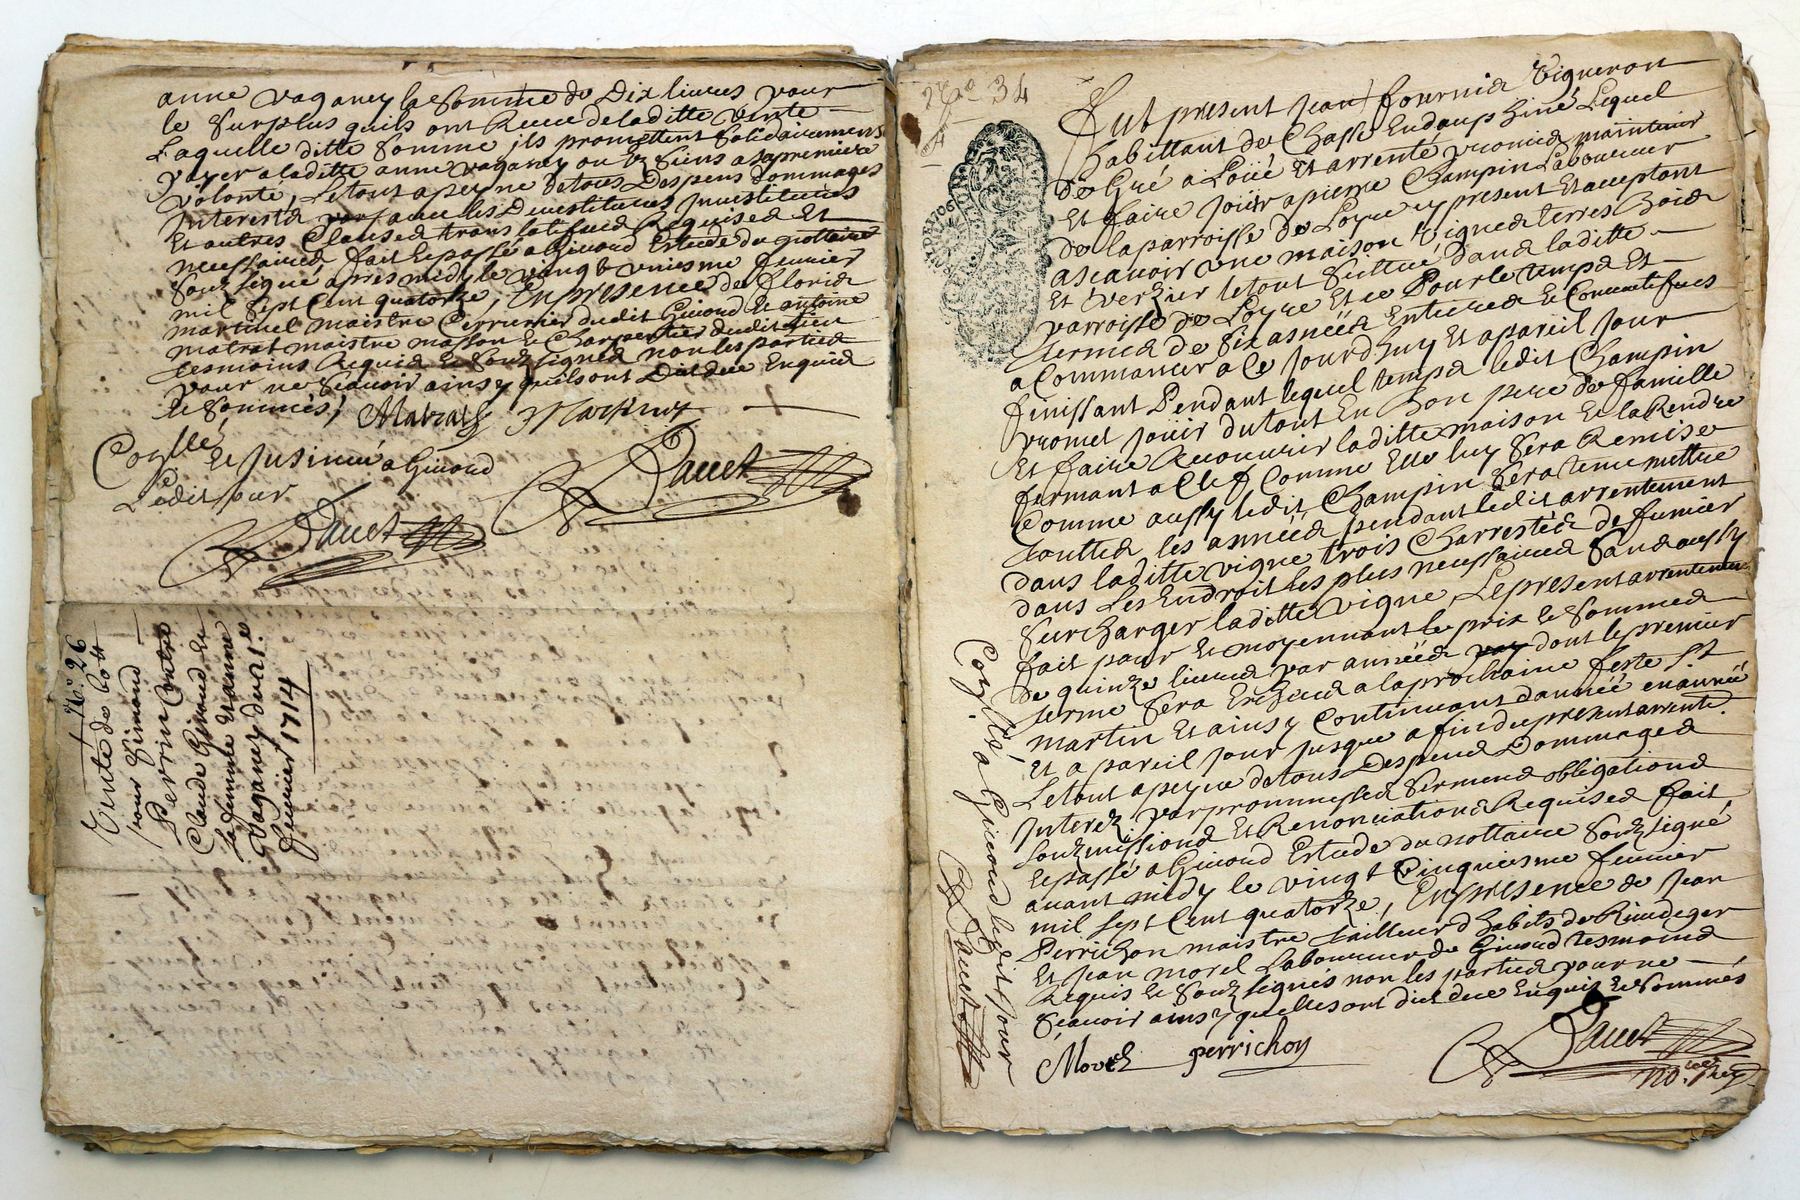 anne vaganey la somme de Dix livres pour
le surplus quils ont Receu de laditte vente
Laquelle ditte somme ils promettent solidairement
payer a laditte anne vaganey ou es siens a sa premiere
volonté, Le tout a peyne de tous Despens dommages
Interestz par avec les Devestitures Investitures
Et autres Clauses translatifves Requises Et
necessaires fait et passé a Givord Estude du nottaire
souzsigné apres midy le vingt uniesme fevrier
mil sept Cent quatorze, En presence de
martinel maistre Cerrurier dudit Givord et antoine
matrat maistre masson et Charpentier dudit lieu
tesmoins Requis et souzsignes non les parties
pour ne scavoir ainsy quils ont Dit de ce Enquis
et sommés,
Matrat Martinel
Con.lle et Insinué a Givord
Ledit jour
Dauet
Dauet
No. 26
Vente de 60 #
pour Simond
Perrin Contre
Claude Givord et
sa femme Et anne
Vaganey du 21.e
fevrier 1714
No 34
Fut present Jean fournier Vigneron
habittant de Chasse En dauphiné Lequel
de Gré a Loüé Et arrenté promis maintenir
Et faire Joüir a pierre Champin Laboureur
de la parroisse de Loyre cy present Et acceptant
ascavoir une maison Vignes terres bois
Et Verzier le tout scittué dans laditte
parroisse de Loyre Et ce Pour le temps Et
termes de six années Entieres et Consecutifves
a Commancer a Ce Jourdhuy Et a pareil Jour
finissant Pendant lequel temps ledit Champin
promet Joüir du tout En bon pere de famille
Et faire Recouvrir laditte maison Et la Rendre
fermant a Clef Comme Elle luy sera Remise
Comme aussy ledit Champin sera tenu mettre
touttes les années pendant ledit arrentement
dans laditte vigne trois Charrestées de fumier
dans Les Endroit les plus necessaires sans aussy
surcharger laditte vigne, Le present arrentement
fait pour Et moyennant le prix et sommes
de quinze livres par années dont le premier
terme sera Escheus a la prochaine feste S.t
martin Et ainsy Continuant dannée en année
Et a pareil Jour Jusque a fin du present arrente.
Le tout a peyne de tous Despens Dommages
Interez par prommesses sermens obligations
souzmissions Et Renonciations Requises fait
et passé a Givord Estude du nottaire souzsigné
avant midy le vingt Cinquiesme fevrier
mil sept Cent quatorze, En presence de Jean
Perrichon maistre tailleur dhabits de Rivedegier
Et Jean morel Laboureur de Givord tesmoins
Requis et souzsignés non les parties pour ne
scavoir ainsy quelles ont dict de ce Enquis et sommés
Morel perrichon
Dauet
no.re
Con.lle a Givord ledit jour
Dauet